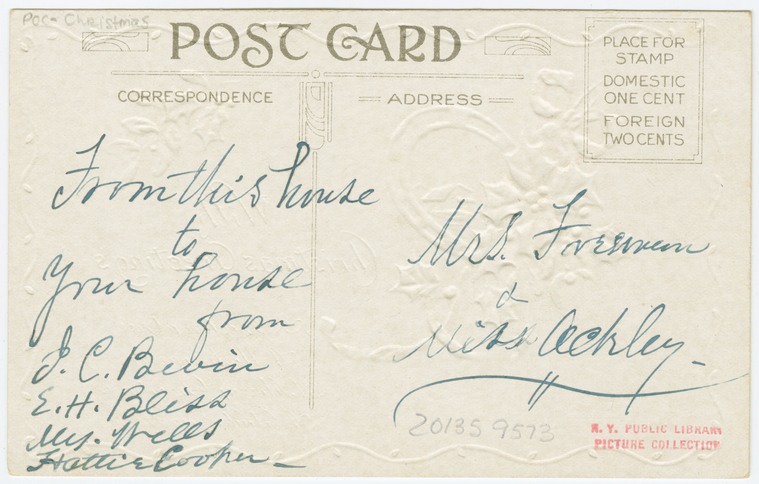 POC - Christmas
POST CARD
CORRESPONDENCE
ADDRESS
PLACE FOR
STAMP
DOMESTIC
ONE CENT
FOREIGN
TWO CENTS
From this house
to
Your house
from
J. C. Bevin
E. H. Bliss
My. Wells
Hattie Cooper
Mrs. Foreman
&
Miss Ackley
20135 9573
N. Y. PUBLIC LIBRARY
PICTURE COLLECTION